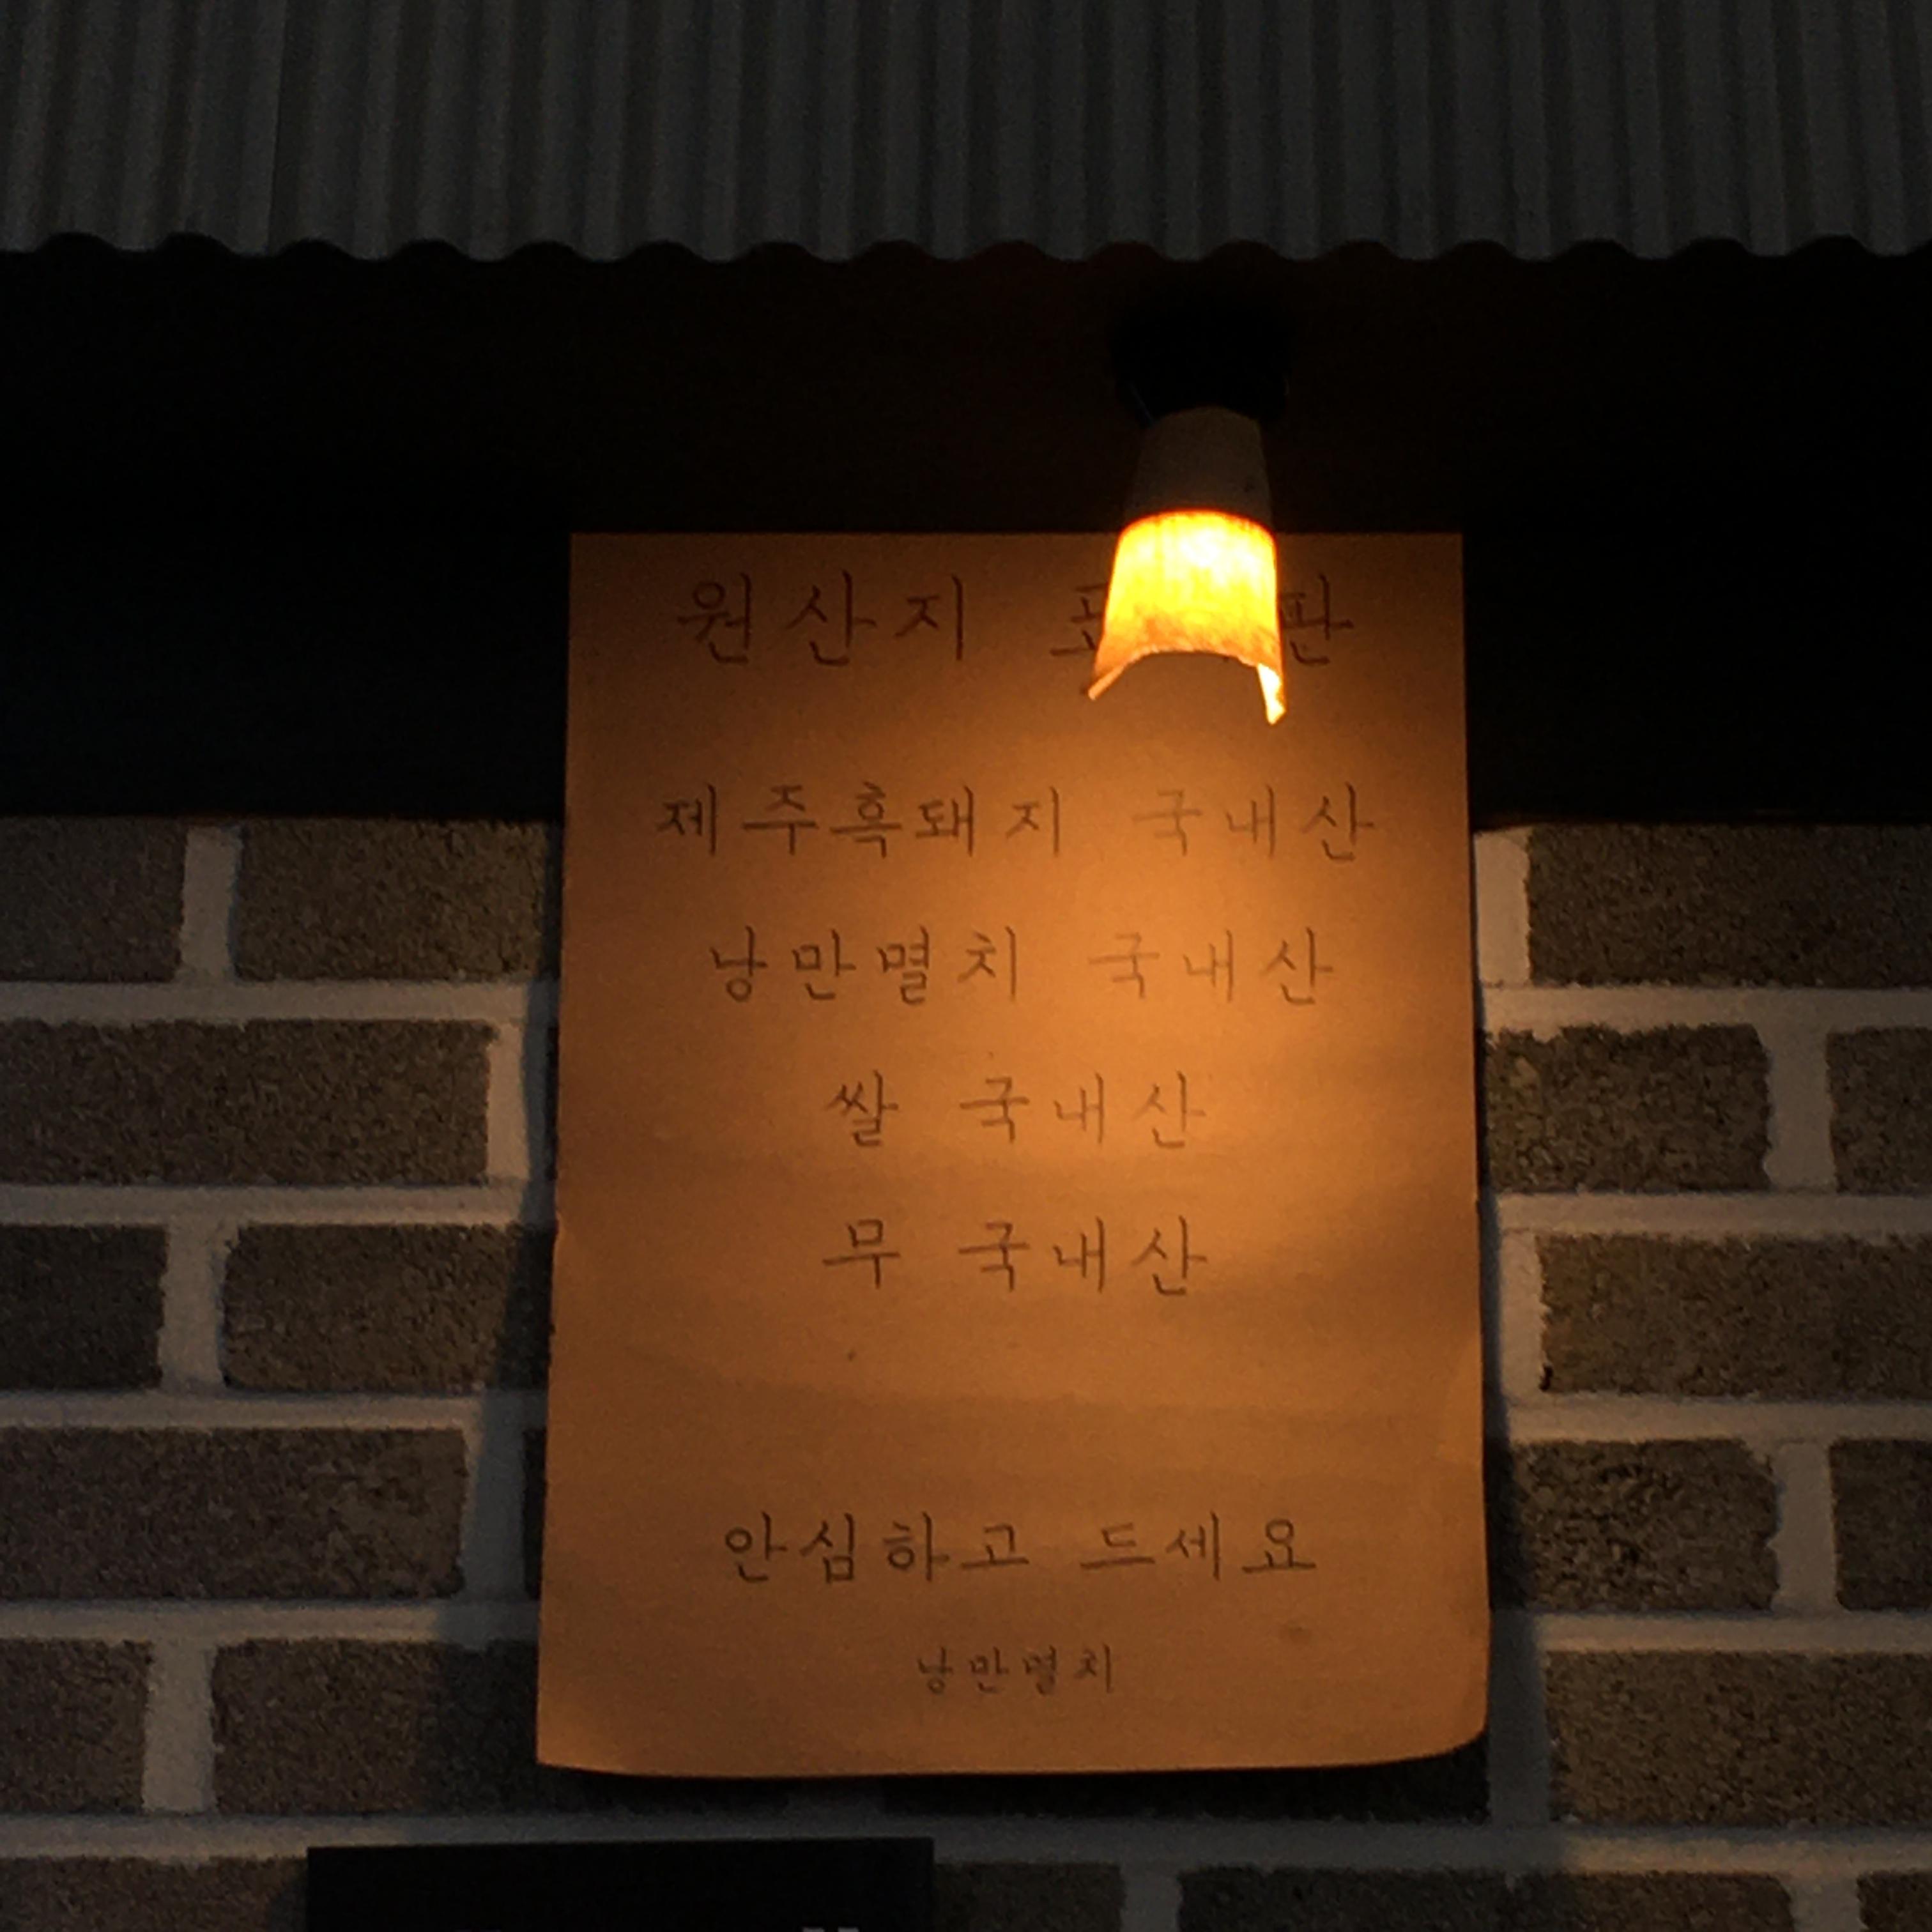 원산지
제주흑돼지 국내산
낭만멸치 국내산
쌀 국내산
무 국내산
안심하고 드세요
낭만멸치